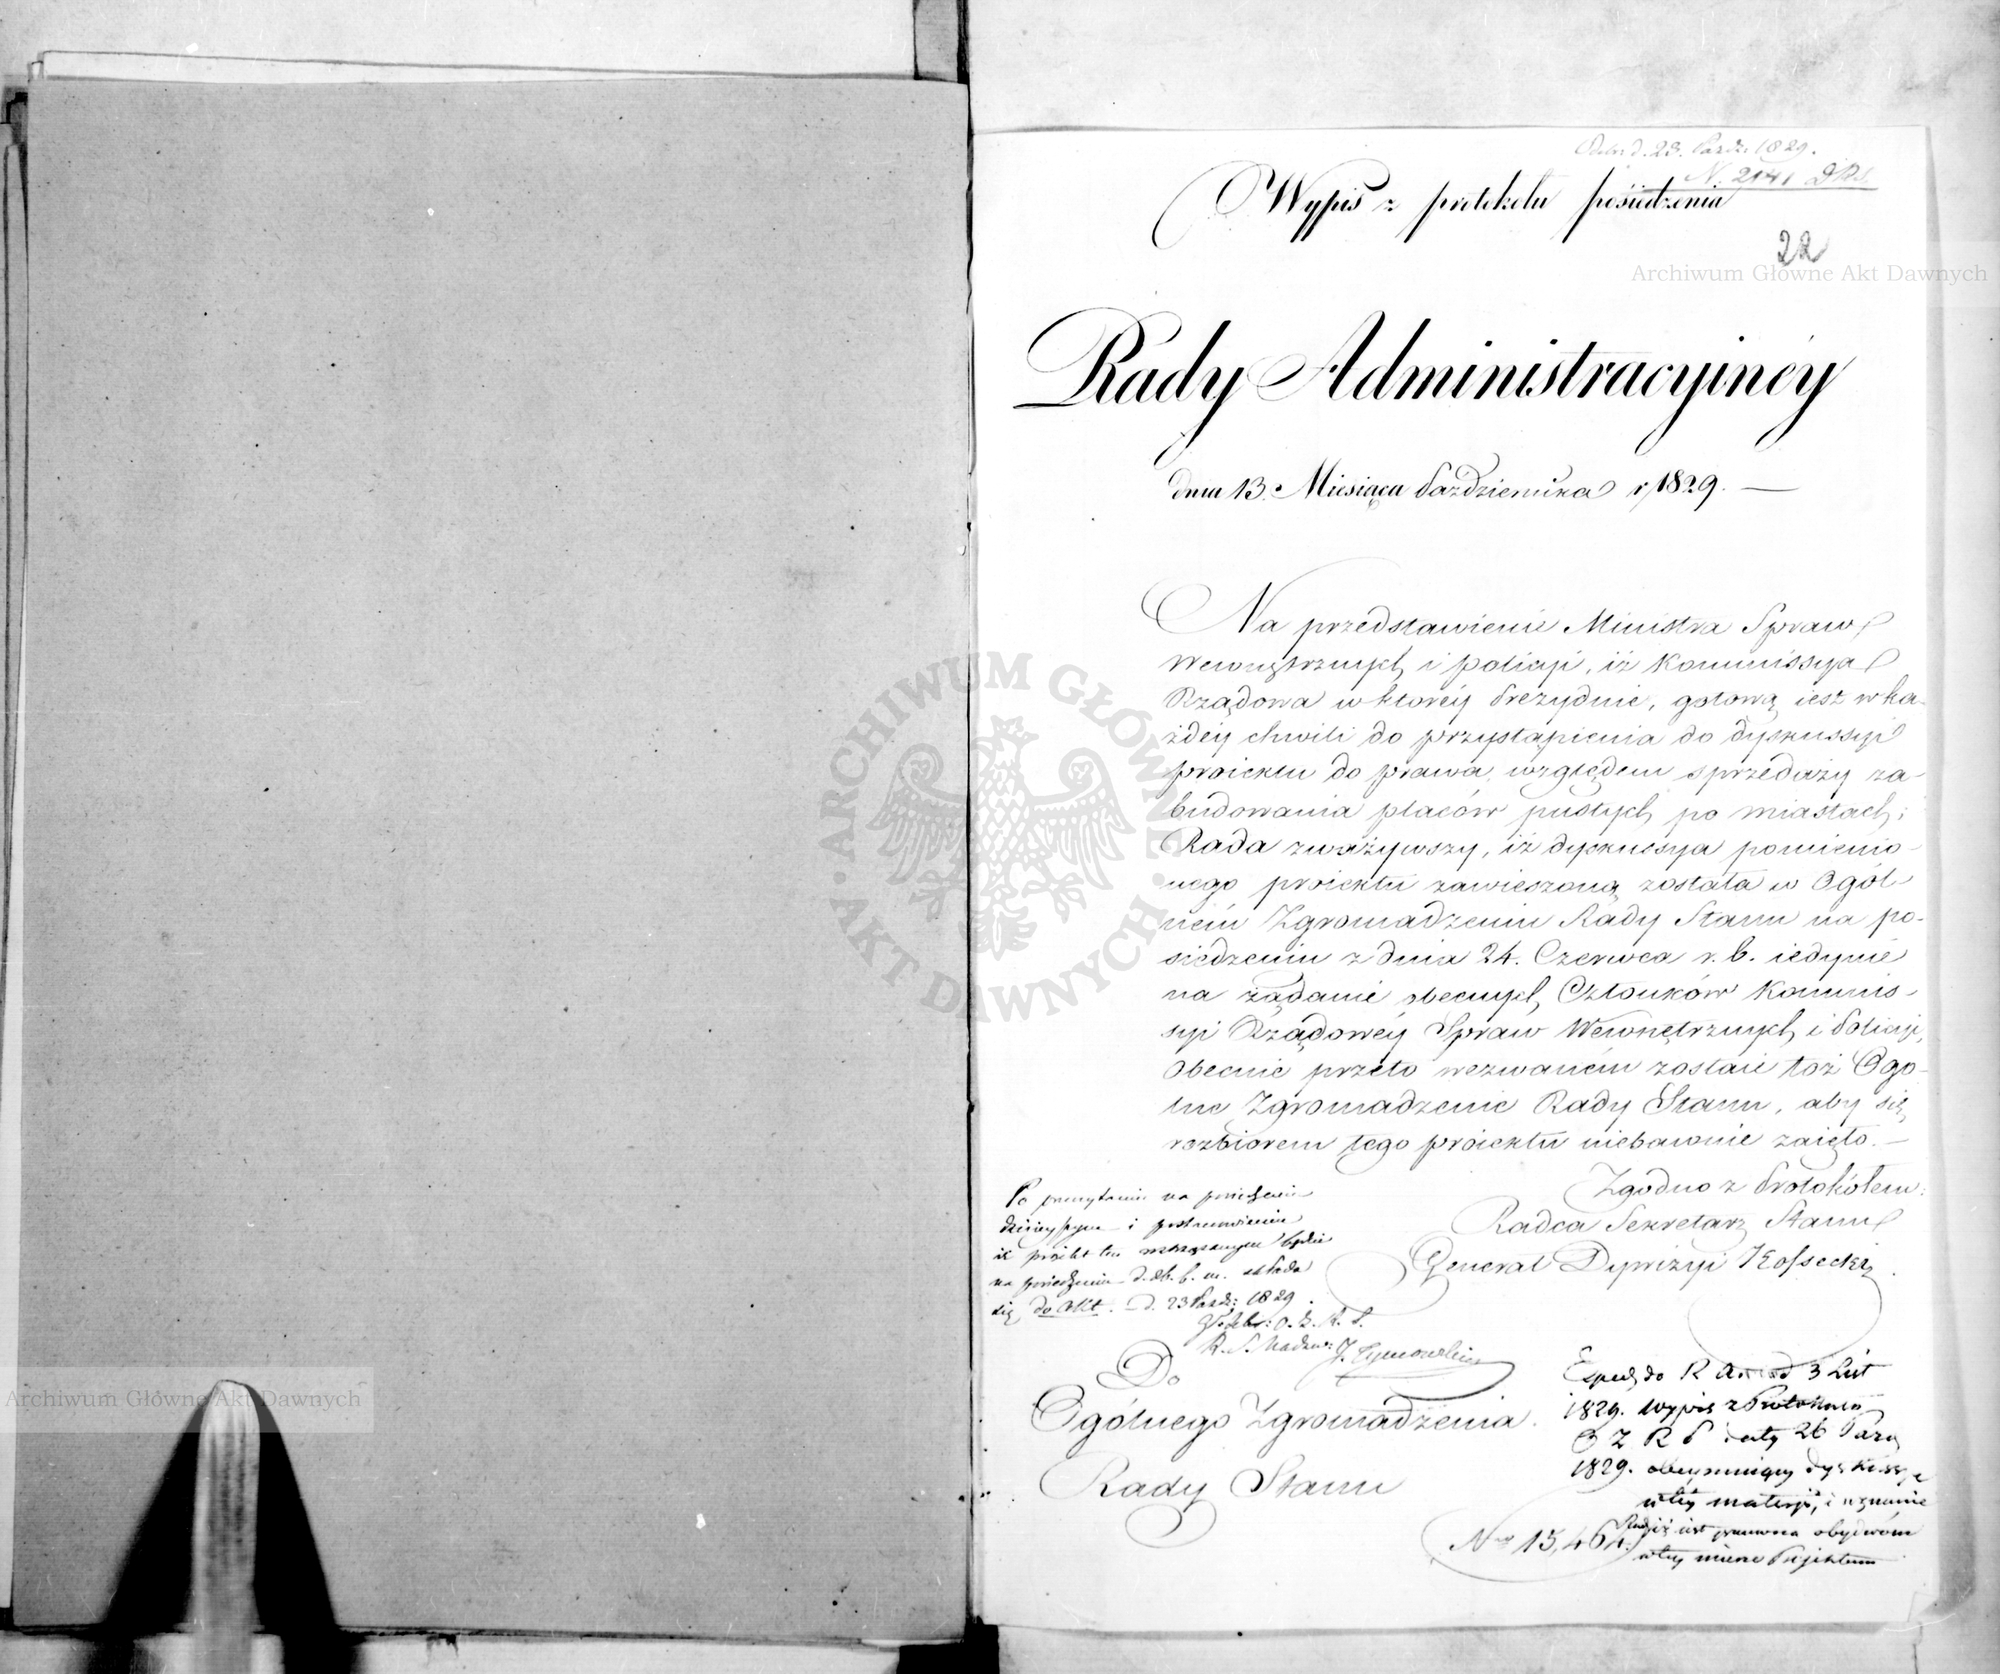 Odebr. d. 23. Paźdz. 1829.
N. 2141 DRS.
Wypis z protokołu posiedzenia
22
Archiwum Główne Akt Dawnych
Rady Administracyinéy
dnia 13. Miesiąca Października r, 1829. —
Na przedstawienie Ministra Spraw
Wewnętrznych i policyi, iż Kommissya
Rządowa w któréy Prezyduie, gotową iest w ka-
żdéy chwili do przystąpienia do dyskussyi
proiektu do prawa względem sprzedaży za-
budowania placów pustych po miastach;
Rada zważywszy, iż dyskussya pomienio-
nego proiektu zawieszoną została w Ogól-
ném Zgromadzeniu Rady Stanu na po-
siedzeniu z dnia 24. Czerwca r. b. iedynie
na żądanie obecnych Członków Kommis-
syi Rządowéy Spraw Wewnętrznych i Policyi,
Obecnie przeto wezwaném zostaie toż Ogó-
lne Zgromadzenie Rady Stanu, aby się
rozbiorem tego proiektu niebawnie zaięło. —
Zgodno z Protokółem:
Radca Sekretarz Stanu
Generał Dywizyi Kossecki
Po przeczytaniu na posiedzeniu
dzisieyszym i postanowieniu
iż projekt ten roztrząsanym będzie
na posiedzeniu d. 26. b. m. składa
się do Akt. — d. 23 Paźdz: 1829.
J. Tymowski
Do
Ogólnego Zgromadzenia
Rady Stanu
Exped. do R A 3 List
1829. Wypis z Protokułu
O Z R S daty 26 Paźd
1829. obeymuiący dyskussye
w téy materyi, i uznanie
Rady iż iest prawna
w téy mierze Projektem
Nro 15,464.
ARCHIWUM GŁÓWNE · AKT DAWNYCH ·
Archiwum Główne Akt Dawnych